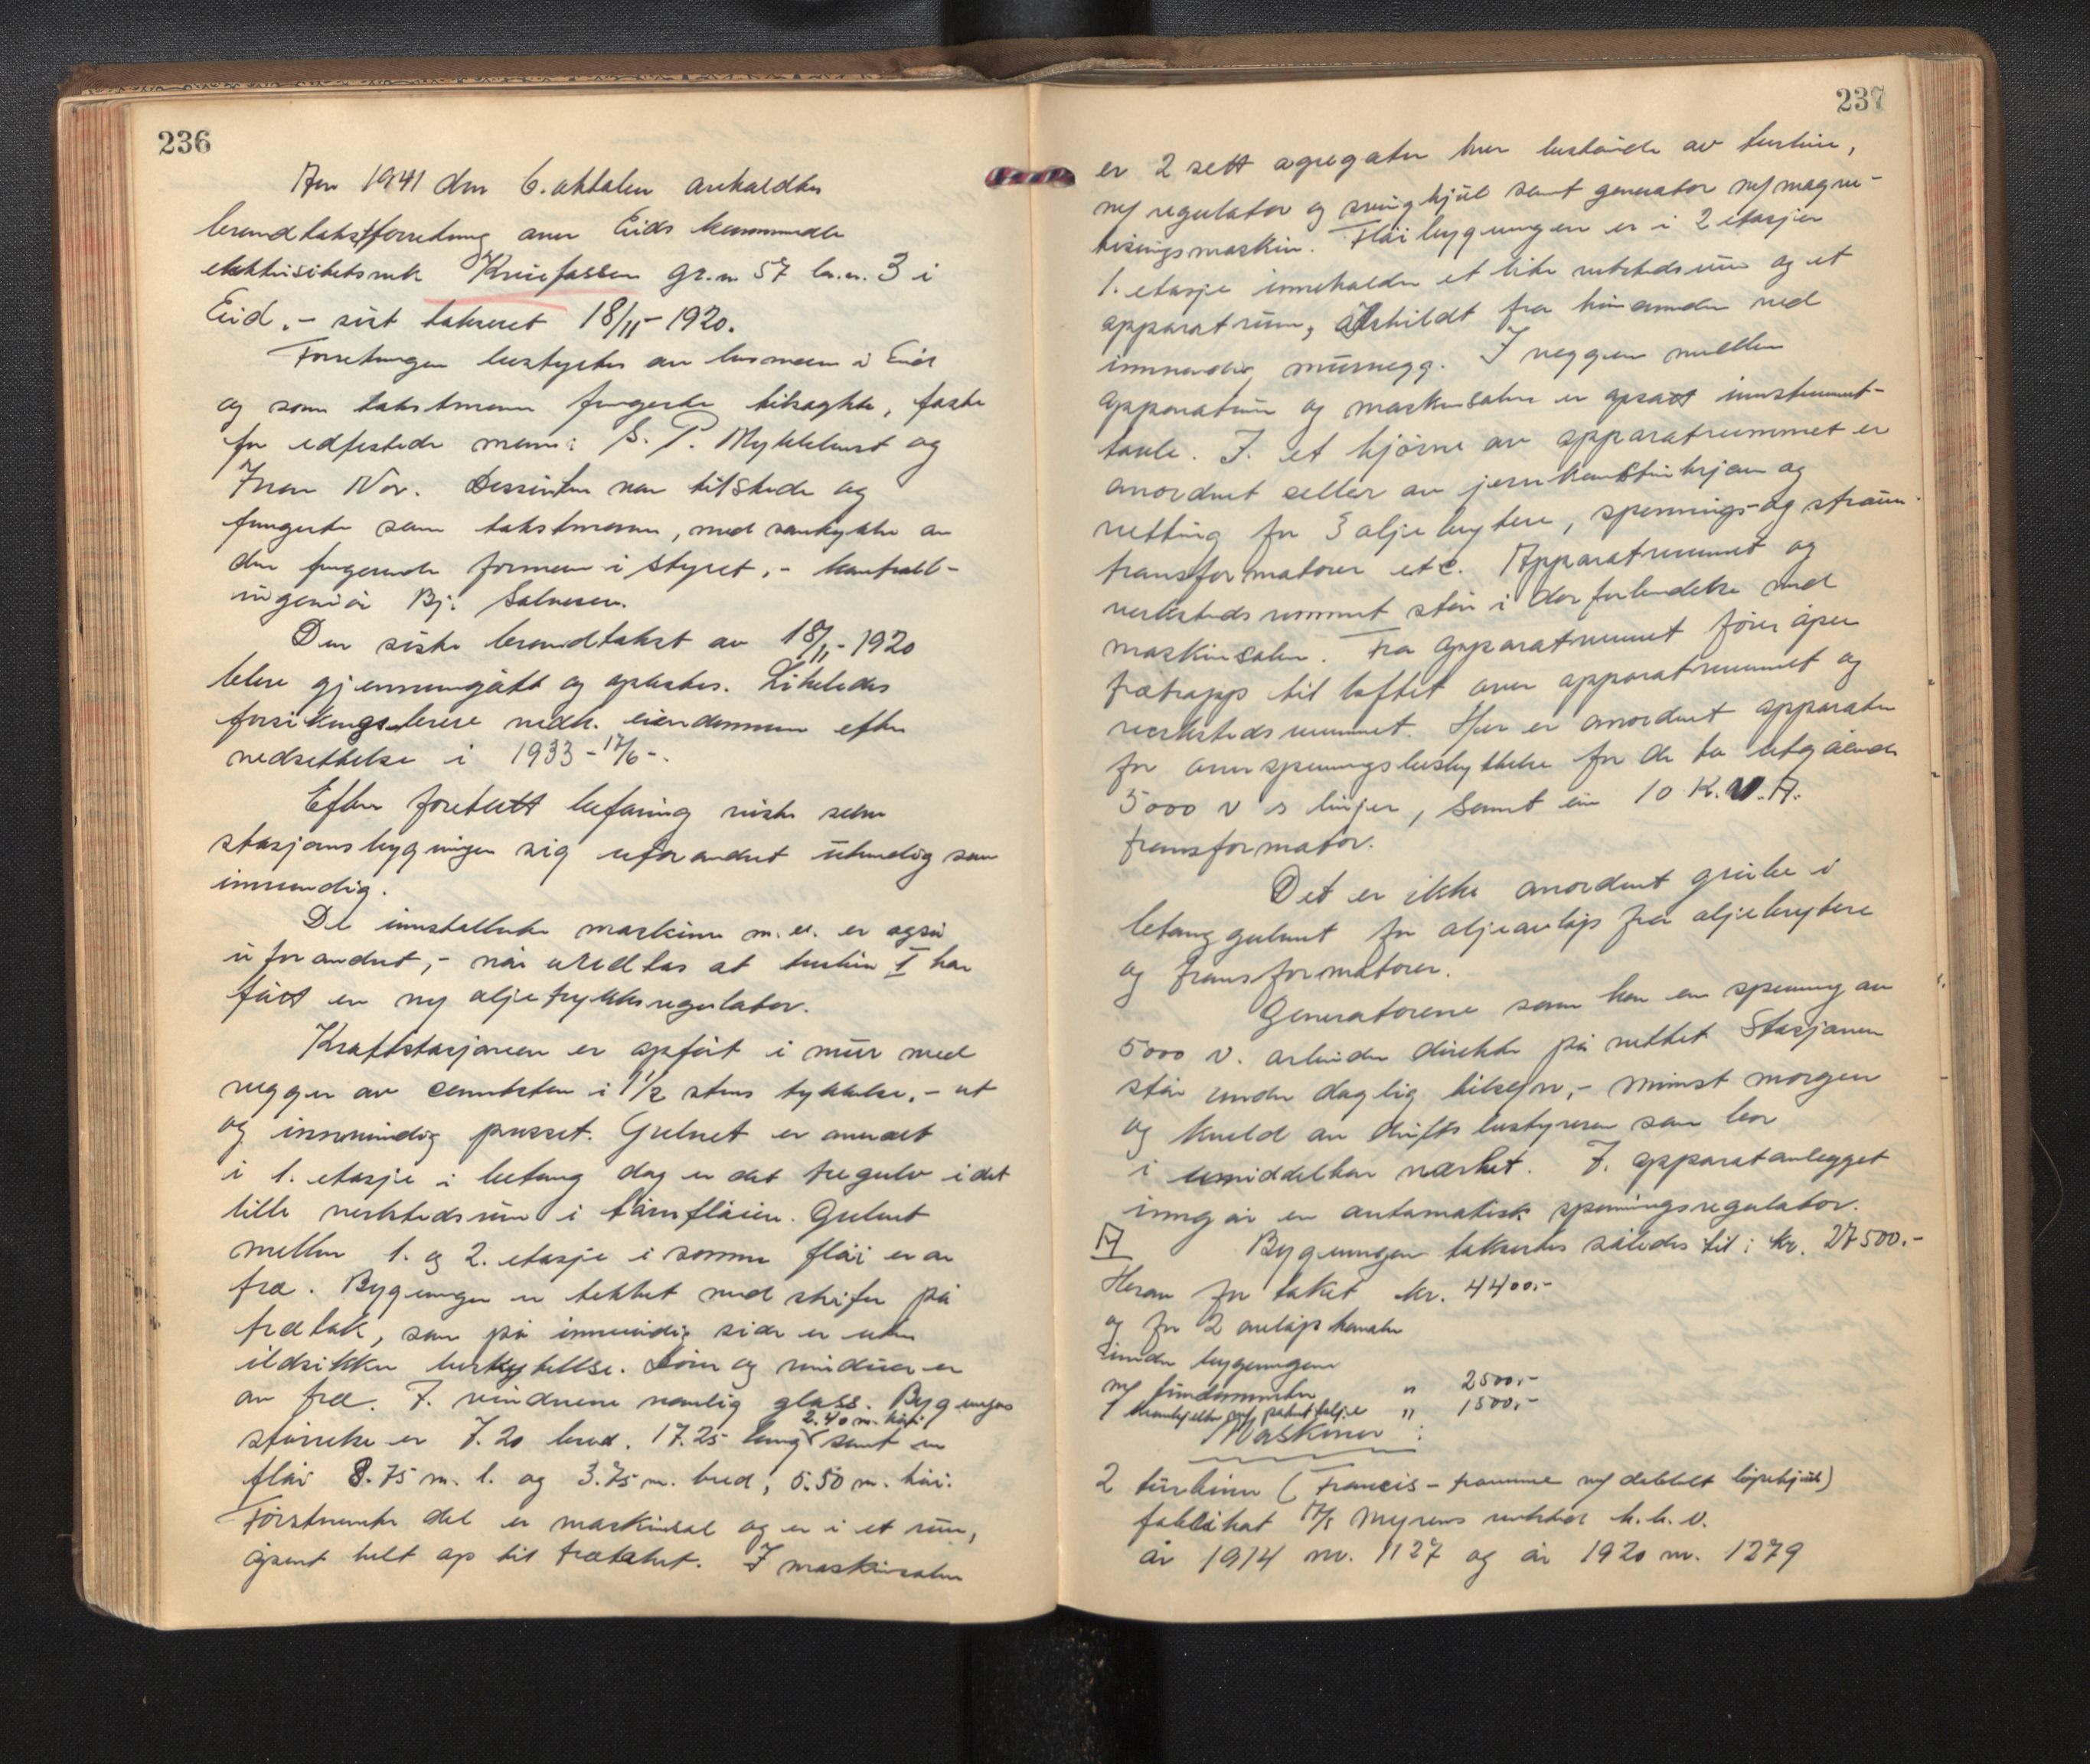 236
Aar 1941 den 6. oktober avholdtes
brandtakstforretning over Eids kommunale
elektrisitetsverk Kviefossen gr.n. 57 br.n. 3 i
Eid. – sist taksert 18/11-1920.
Forretningen bestyrtes av lensmann i Eid
og som takstmenn fungerte tilsagte, faste
før edfestede menn: S. P. Myklebust og
Ivar Nor. Dessuten var tilstede og
fungerte som takstmann, med samtykke av
den fungerende formann i styret, – kontroll-
ingeniør Bj. Salvesen.
Den siste brandtakst av 18/11-1920
blev gjennemgått og oplestes. Likeledes
forsikringsbrevet vedk. eiendommen efter
nedsettelse i 1933 - 17/6 -.
Efter foretatt befaring viste selve
stasjonsbygningen sig uforandret utvendig som
innvendig.
De installerte maskiner m. v. er også
uforandret, – når undtas at turbin I har
fått en ny oljetrykksregulator.
Kraftstasjonen er opført i mur med
vegger av cementsten i 1 1/2 stens tykkelse, – ut
og innvendig pusset. Gulvet er overalt
i 1. etasje i betong dog er det tregulv i det
lille verkstedsrum i tårnfløien. Gulvet
mellem 1. og 2. etasje i samme fløi er av
træ. Bygningen er tekket med skifer på
trætak, som på innvendig side er uten
ildsikker beskyttelse. Dører og vinduer er
av træ. I vinduene vanlig glass. Bygningens
2.40 m. høi
størrelse er 7.20 bred. 17.25 lang samt en
fløi 8.75 m. l. og 3.75 m. bred, 5.50 m. høi.
Førstnevnte del er maskinsal og er i et rum,
åpent helt op til trætaket. I maskinsalen
237
er 2 sett agregater hver bestående av turbin,
m/ regulator og svinghjul samt generator m/ magne-
tiseringsmaskin. Fløibygningen er i 2 etasjer
1. etasje inneholder et lite verkstedsrum og et
apparatrum, adskildt fra hinannen ved
innvendig murvegg. I veggen mellem
apparatrum og maskinsalen er opsatt instrument-
tavle. I et hjørne av apparatrummet er
anordnet celler av jernkonstruksjon og
netting for 3 oljebrytere, spennings- og strøm-
transformatorer etc. Apparatrummet og
verkstedsrommet står i dørforbindelse med
maskinsalen. Fra apparatrummet fører åpen
trætrapp til loftet over apparatrummet og
verkstedsrummet. Her er anordnet apparater
for overspenningsbeskyttelse for de to utgående
5000 v s linjer, samt en 10 K.V.A.
transformator.
Det er ikke anordnet grube i
betonggulvet for oljeavløp fra oljebrytere
og transformatorer.
Generatorene som har en spenning av
5000 v. arbeider direkte på nettet Stasjonen
står under daglig tilsyn, – minst morgen
og kveld av driftsbestyreren som bor
i umiddelbar nærhet. I apparatanlegget
inngår en automatisk spenningsregulator.
A Bygningen takseres således til: kr. 27500.-
Herav for taket kr. 4400.-
og for 2 avløpskanaler
under bygningen
m/ fundamenter " 2500.-
1 " 1500.-
Maskiner:
2 turbiner (Francis – tromme m/ dobbelt løpehjul)
fabrikat A/S Myrens verksted h.h.v.
år 1914 nr. 1127 og år 1920 nr. 1279